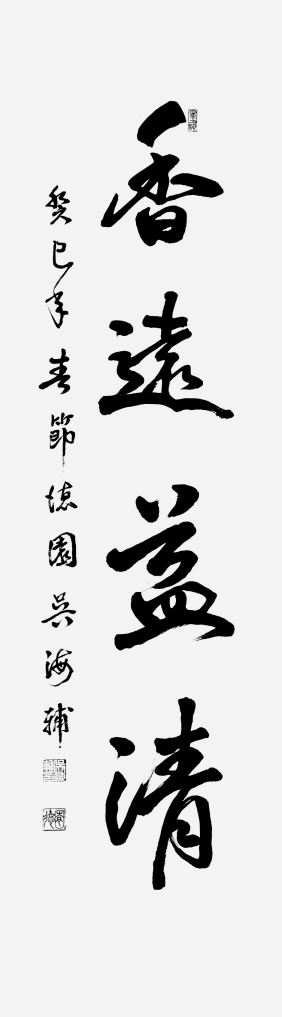 香遠益清
癸巳年春節德園吳海輔